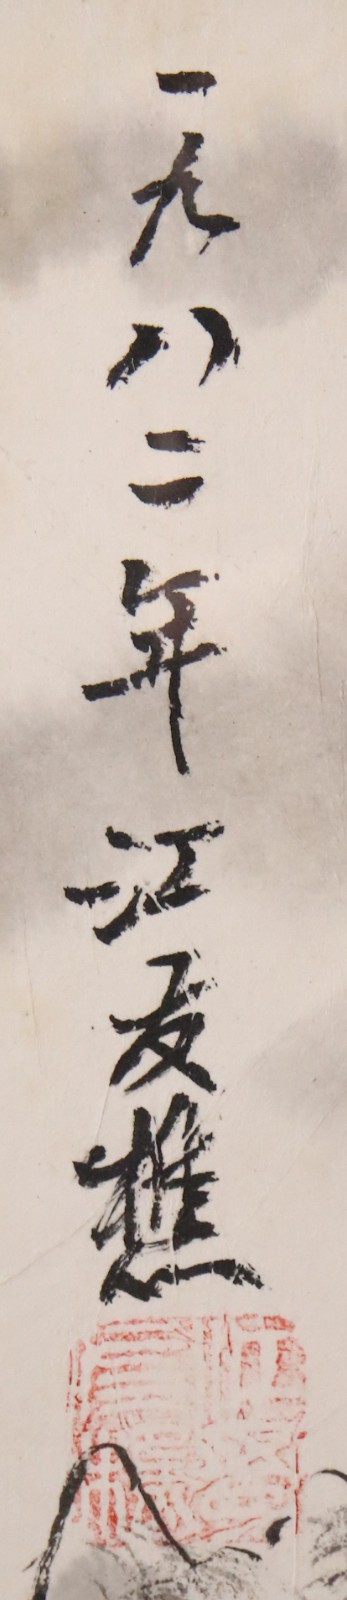 一九八二年江友樵